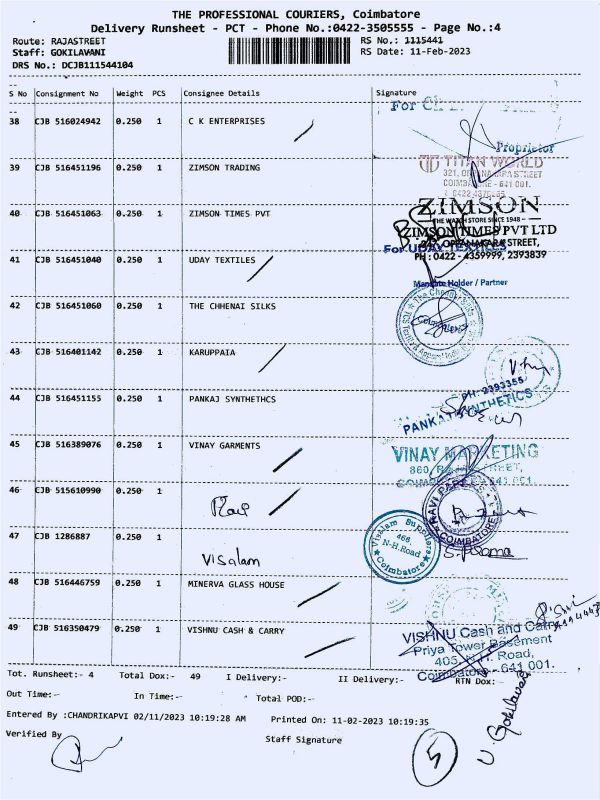 THE PROFESSIONAL COURIERS, Coimbatore
Delivery Runsheet - PCT - Phone No.:0422-3505555 - Page No.:4
Route: RAJASTREET
RS No.: 1115441
Staff: GOKILAVANI
RS Date: 11-Feb-2023
DRS No.: DCJB111544104
S No Consignment No Weight PCS Consignee Details Signature
38 CJB 516024942 0.250 1 C K ENTERPRISES
For
Proprietor
39 CJB 516451196 0.250 1 ZIMSON TRADING
TITAN WORLD
COIMBATORE - 641 001.
40 CJB 516451063 0.250 1 ZIMSON TIMES PVT
ZIMSON
THE WATCH STORE SINCE 1948
ZIMSON TIMES PVT LTD
OPPANAKARA STREET,
PH : 0422 - 4359999, 2393839
41 CJB 516451040 0.250 1 UDAY TEXTILES
For UDAY TEXTILES
Mandate Holder / Partner
42 CJB 516451060 0.250 1 THE CHHENAI SILKS
43 CJB 516401142 0.250 1 KARUPPAIA
44 CJB 516451155 0.250 1 PANKAJ SYNTHETHCS
PH: 2393355
PANKAJ SYNTHETICS
45 CJB 516389076 0.250 1 VINAY GARMENTS
VINAY MARKETING
46 CJB 515610990 0.250 1
Ravi
COIMBATORE
47 CJB 1286887 0.250 1
Visalam
Visalam Suppliers
466,
N-H.Road
Coimbatore
48 CJB 516446759 0.250 1 MINERVA GLASS HOUSE
49 CJB 516350479 0.250 1 VISHNU CASH & CARRY
VISHNU Cash and Carry
Priya Tower Basement
Coimbatore - 641 001.
Tot. Runsheet:- 4 Total Dox:- 49 I Delivery:- II Delivery:- RTN Dox:-
Out Time:- In Time:- Total POD:-
Entered By :CHANDRIKAPVI 02/11/2023 10:19:28 AM Printed On: 11-02-2023 10:19:35
Verified By
Staff Signature
5